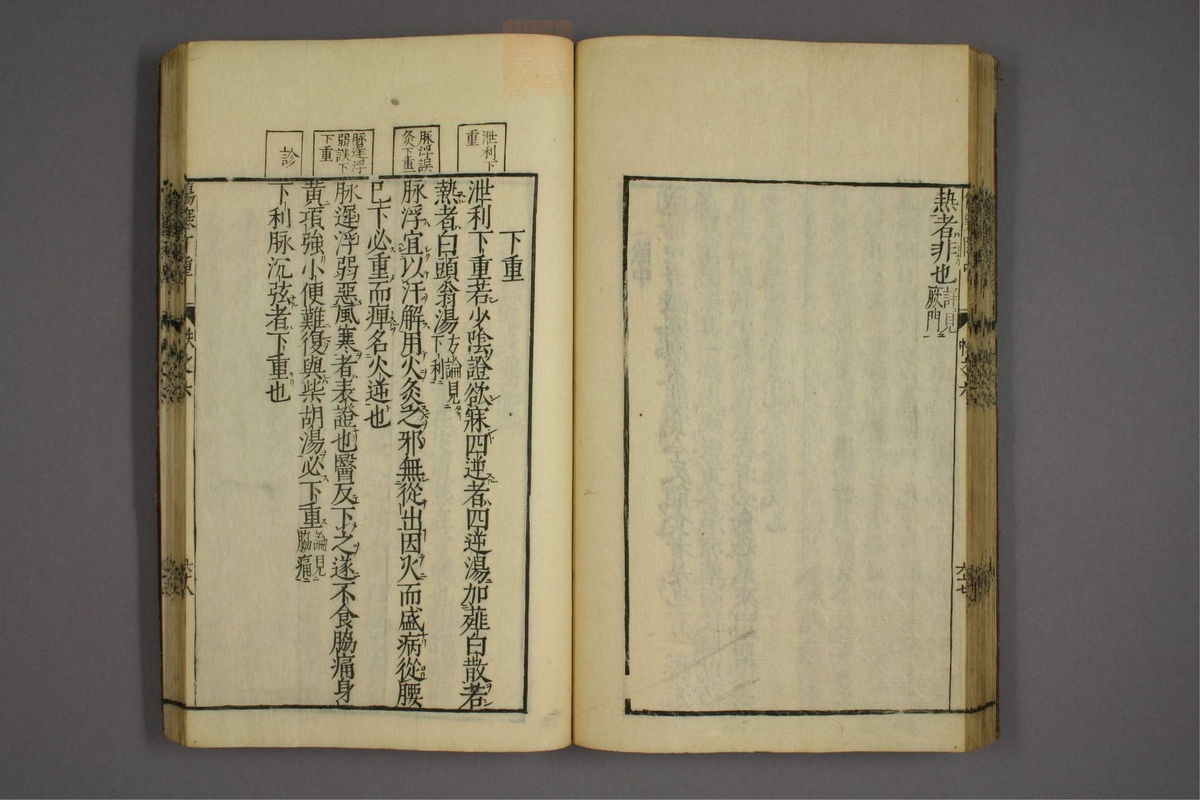 熱者非也詳見厥門
泄利下重
脉浮誤灸下重
脉遲浮弱誤下下重
診
下重
泄利下重若少陰證欲寐四逆者四逆湯加薤白散若
熱者白頭翁湯方論見下利
脉浮宜以汗解用火灸之邪無從出因火而盛病從腰
已下必重而痺名火逆也
脉遲浮弱惡風寒者表證也醫反下之遂不食脇痛身
黃項強小便難復與柴胡湯必下重論見脇痛
下利脉沉弦者下重也
下重
帙之六
六十八